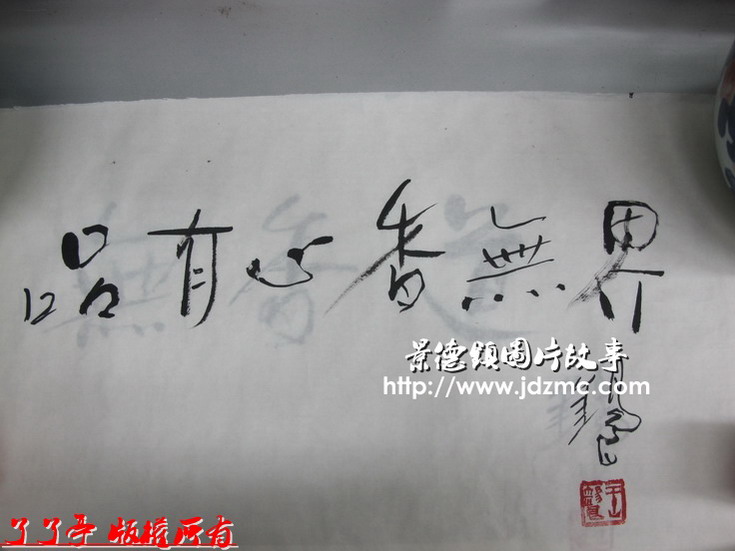 品有心香無界
景德鎮圖片故事
http://www.jdzmc.com
了了亭 版權所有